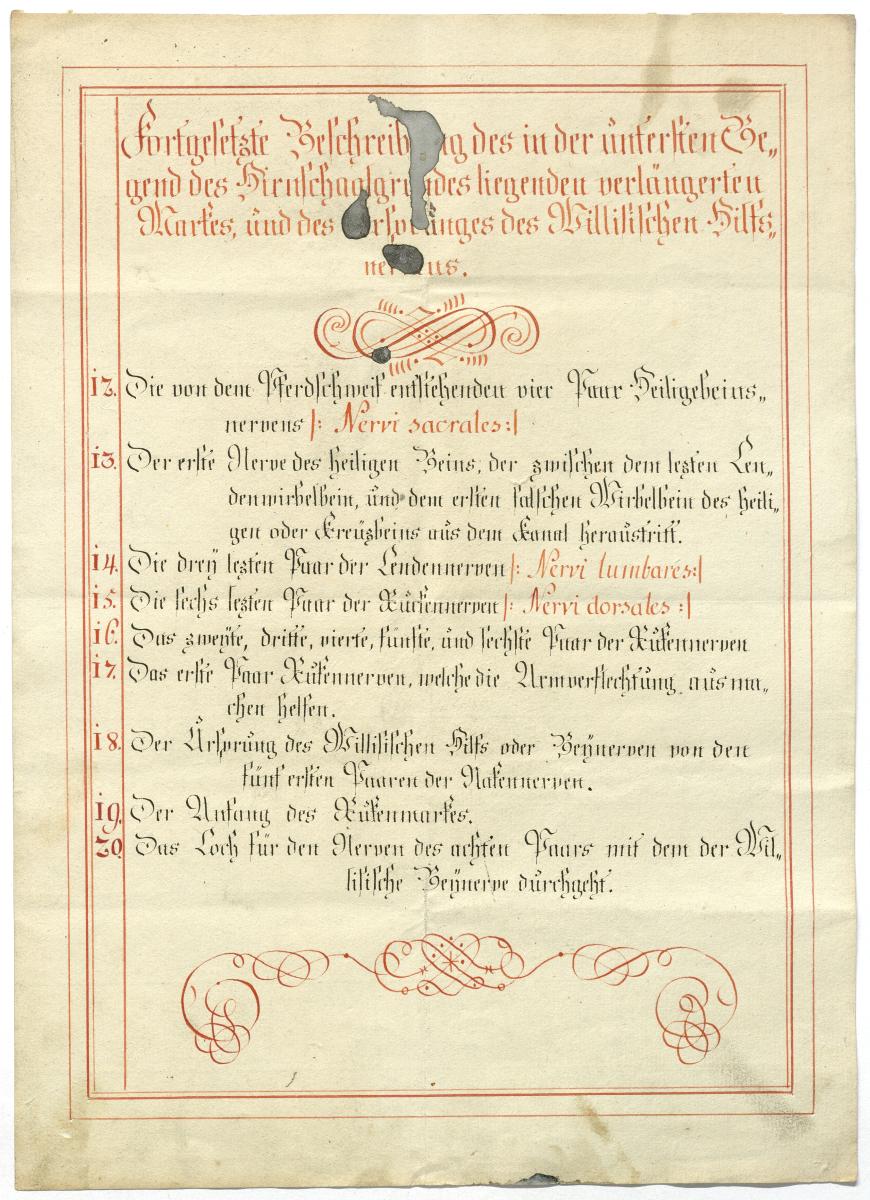 Fortgesetzte Beschreibung des in der untersten Ge„
gend des Hirnschaalgrundes liegenden verlängerten
Markes, und des Ursprunges des Willisischen Hilfs„
nervens.
12. Die von dem Pferdschweif entstehenden vier Paar Heiligebeins„
nervens |: Nervi sacrales :|
13. Der erste Nerve des heiligen Beins, der zwischen dem lezten Len„
denwirbelbein, und dem ersten falschen Wirbelbein des heili„
gen oder Kreuzbeins aus dem Kanal heraustritt.
14. Die drey lezten Paar der Lendennerven |: Nervi lumbares :|
15. Die sechs lezten Paar der Rückennerven |: Nervi dorsales :|
16. Das zweyte, dritte, vierte, fünfte, und sechste Paar der Rükennerven
17. Das erste Paar Rükennerven, welche die Armverflechtung ausma„
chen helfen.
18. Der Ursprung des Willisischen Hilfs oder Beynerven von den
fünf ersten Paaren der Nakennerven.
19. Der Anfang des Rükenmarkes.
20. Das Loch für den Nerven des achten Paars mit dem der Wil„
lisische Beynerve durchgeht.